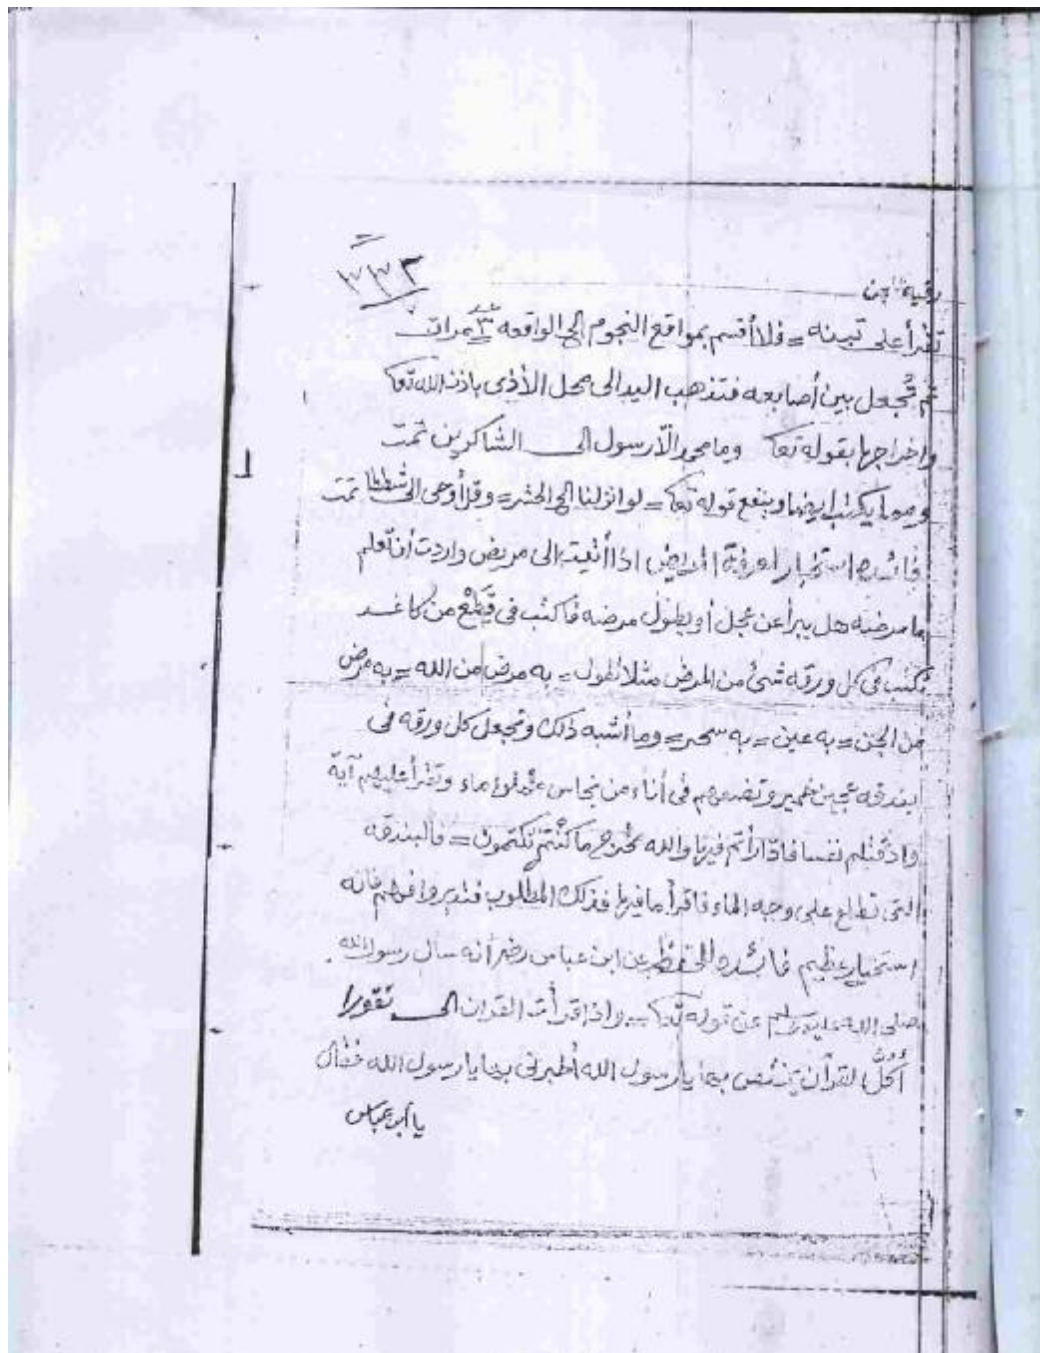 ٣٣٢
رقية
تقرأ على تبينه = فلا أقسم بمواقع النجوم الى الواقعه ٣ مرات
ثم تُجعل بين أصابعه فتذهب اليد الى محل الأذى باذن الله تعا
واخراجها بقوله تعا وما محمد الّا رسول الى الشاكرين تمت
ومما يكتب ايضا وينفع قوله تعا = لو انزلنا الى الحشر = وقل أوحى الى شططا تمت
فائده استخبار لمعرفة المريض اذا أتيت الى مريض واردت أن تعلم
ما مرضه هل يبرأ عن عجل أو يطول مرضه فاكتب في قِطَع من كاغد
تكتب في كل ورقه شئ من المرض مثلا تقول = به مرض من الله = به مرض
من الجن = به عين = به سحر = وما أشبه ذلك وتجعل كل ورقه في
بندقه عجين خمير وتضعهم في أناء من نحاس مملوء ماء وتقرأ عليهم آية
واذ قتلتم نفسا فادّارأتم فيها والله مخرج ما كنتم تكتمون = فالبندقه
التى تطلع على وجه الماء فاقرأ ما فيها فذلك المطلوب فتدبر وافهم فانه
استخبار عظيم فائده للحفظ عن ابن عباس رضي أنه سال رسول الله
صلى الله عليه وسلم عن قوله تعا = واذا قرأت القران الى نفورا
أكُلُّ القرآن يا رسول الله أخبرنى بها يا رسول الله فقال
يا ابن عباس